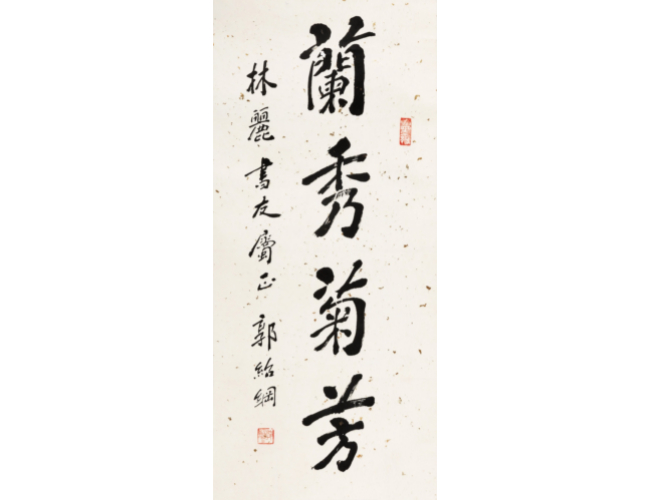 蘭秀菊芳
林麗書友屬正 郭紹綱